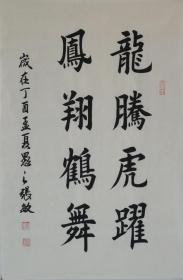 龍騰虎躍
鳳翔鶴舞
歲在丁酉孟夏 張敏